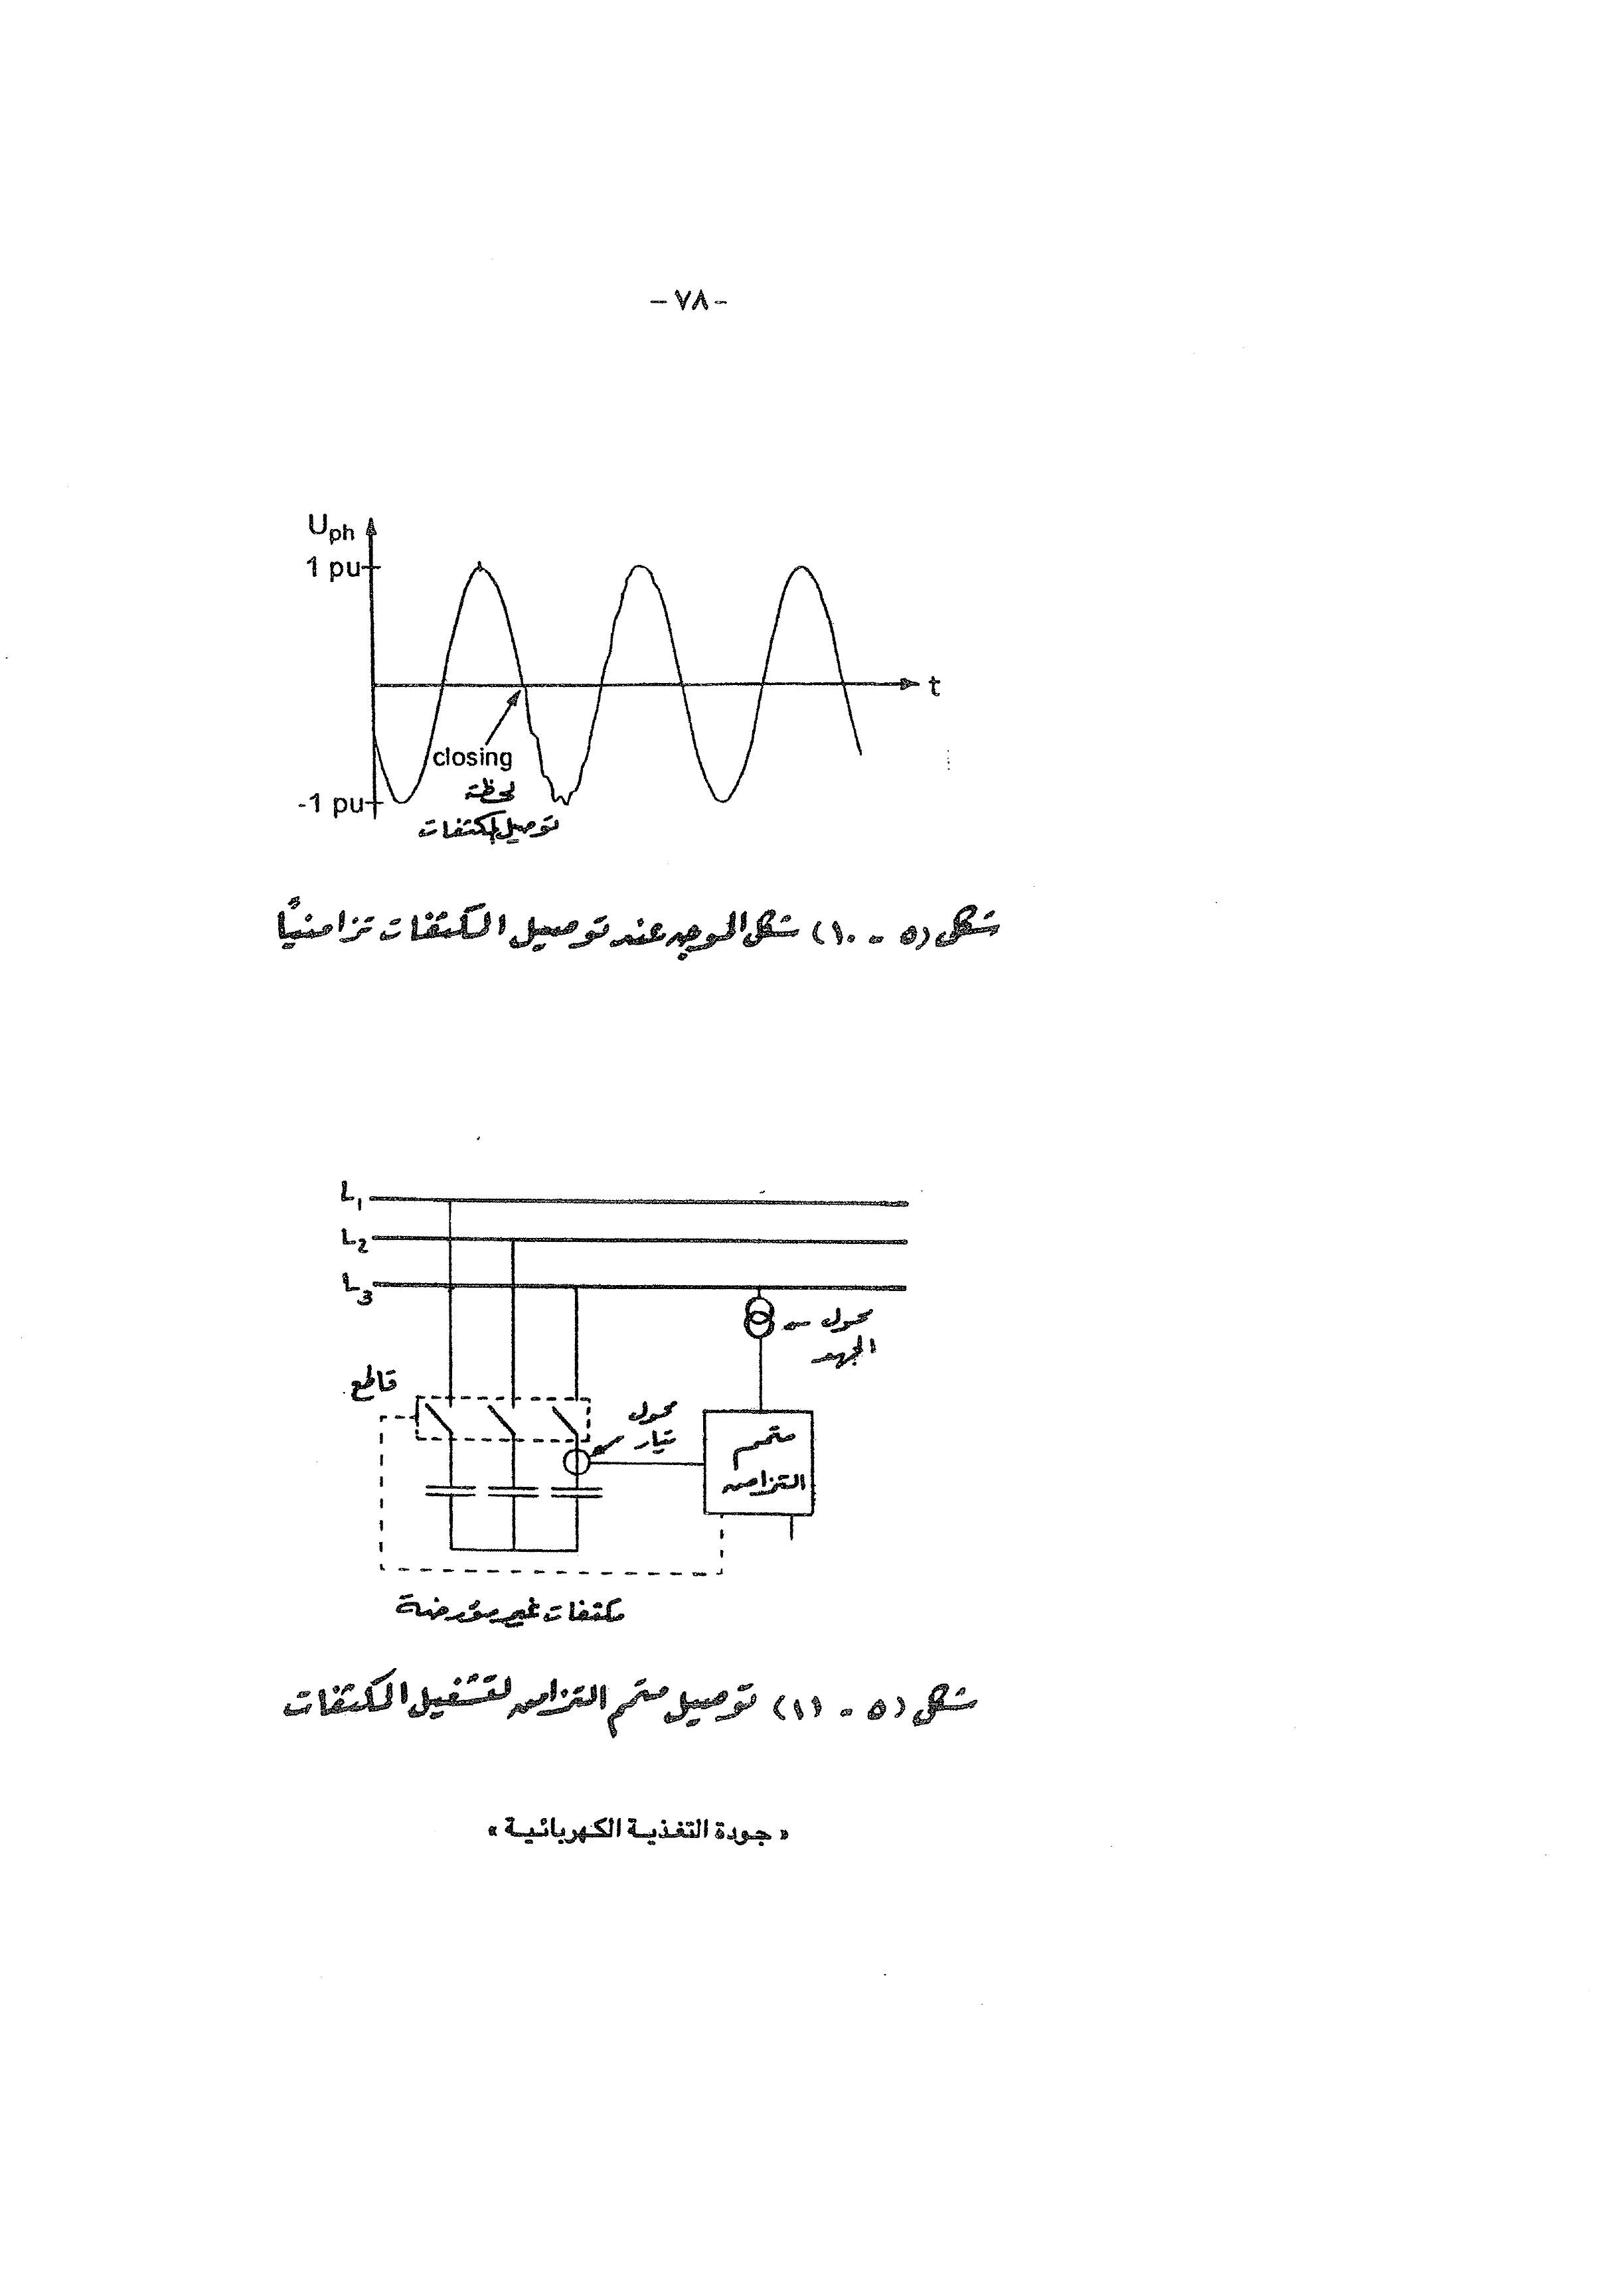 - ٧٨ -
U ph
1 pu
t
closing
-1 pu
لحظة
توصيل المكثفات
شكل (٥ - ١٠) شكل الموجه عند توصيل المكثفات تزامنياً
L1
L2
L3
محول
الجهد
قاطع
محول
تيار
متمم
التزامن
مكثفات غير مؤرضة
شكل (٥ - ١١) توصيل متمم التزامن لتشغيل المكثفات
« جودة التغذية الكهربائية »